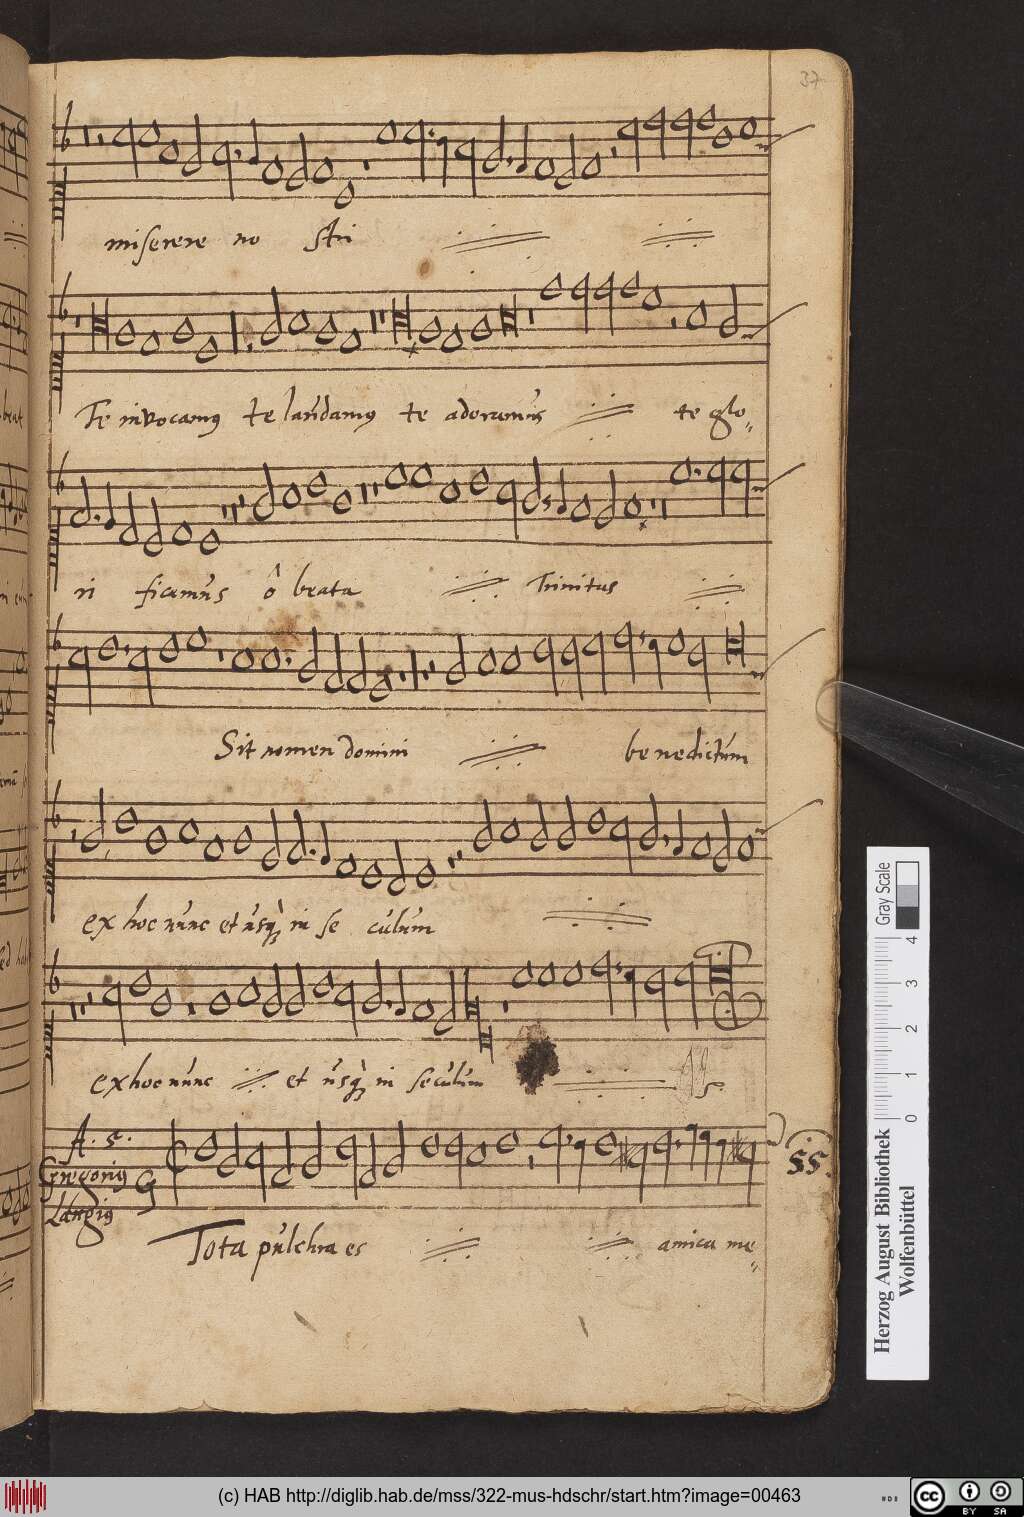 37
miserere no stri
Te invocamus te laudamus te adoramus te glo
ri ficamus ô beata Trinitas
Sit nomen domini benedictum
ex hoc nunc et usq; in se culum
ex hoc nunc et usq; in seculum
A. 5.
Gregorius
Langius
55.
Tota pulchra es amica me
Gray Scale
0 1 2 3 4
Herzog August Bibliothek
Wolfenbüttel
(c) HAB http://diglib.hab.de/mss/322-mus-hdschr/start.htm?image=00463
cc BY SA